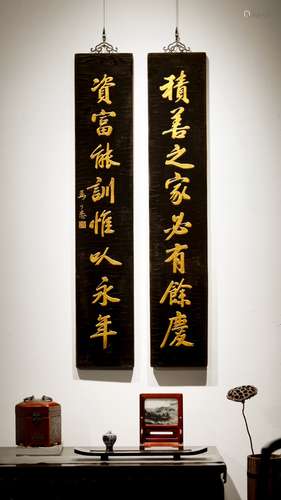 積善之家必有餘慶
資富能訓惟以永年